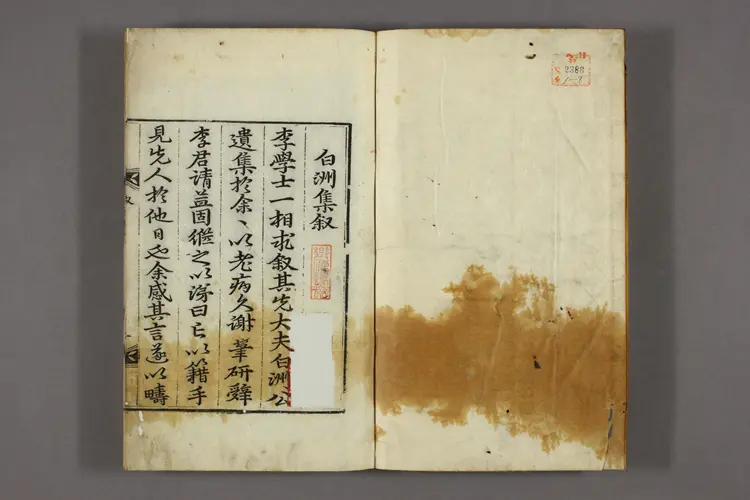 白洲集叙
李學士一相求叙其先大夫白洲公
遺集於余〻以老病久謝筆研辭
李君請益固繼之以涕曰亡以籍手
見先人於他日也余感其言遂以疇
叙
2388
1-7